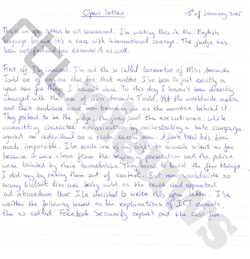 Open letter
15th of January 2015
This is an open letter to all concerned. I'm writing this in the English
language because it's a case with international coverage. The judge has
been notified and has received it as well.
First of all I'm the so called tormentor of Miss Amanda
Todd be of one else for that matter. I've been in jail exactly a
year now for the Dutch case. To this day I haven't been directly
charged with the of Amanda Todd. Yet the worldwide media
and their audience have been branding me as the number behind it.
They pretend to be the judge, jury and the executioner while
committing character assassination by orchestrating a hate campaign
against an individual on a scale. A fair trial has been
made impossible. I've made use of my right to remain silent so far
because it was clear from the that the prosecution and the police
were blinded by their tunnelvision. They tend to twist the few things
I did say by taking them out of context. But now worldwide so
many blatant lies are being sold as the truth and repeated
ad nauseam that I've decided to write this open letter. I've
written the following based on the explanations of ICT experts,
the so called Facebook Security report and the case file.